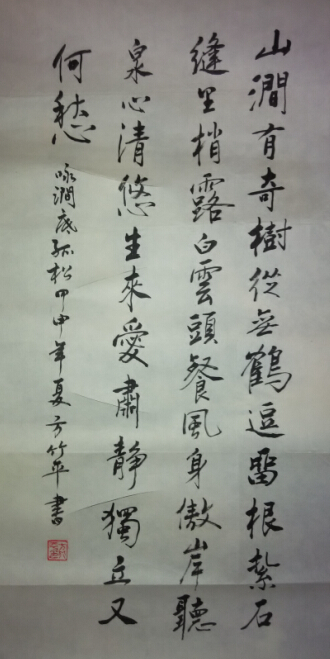 山澗有奇樹從無鶴逗留根紮石
縫里梢露白雲頭餐風身傲岸聽
泉心清悠生來愛肅靜獨立又
何愁
咏澗底孤松甲申年夏方竹平書